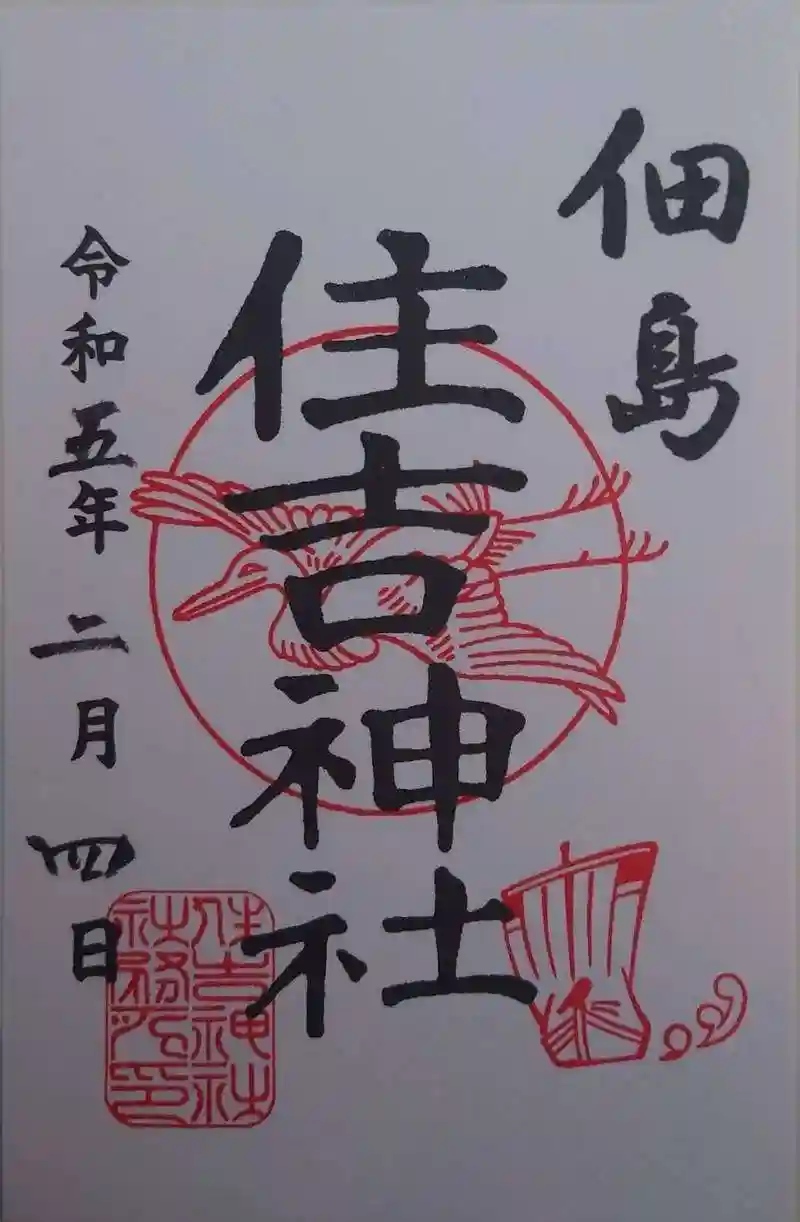 佃島
住吉神社
令和五年二月四日
住吉神社
社務所印